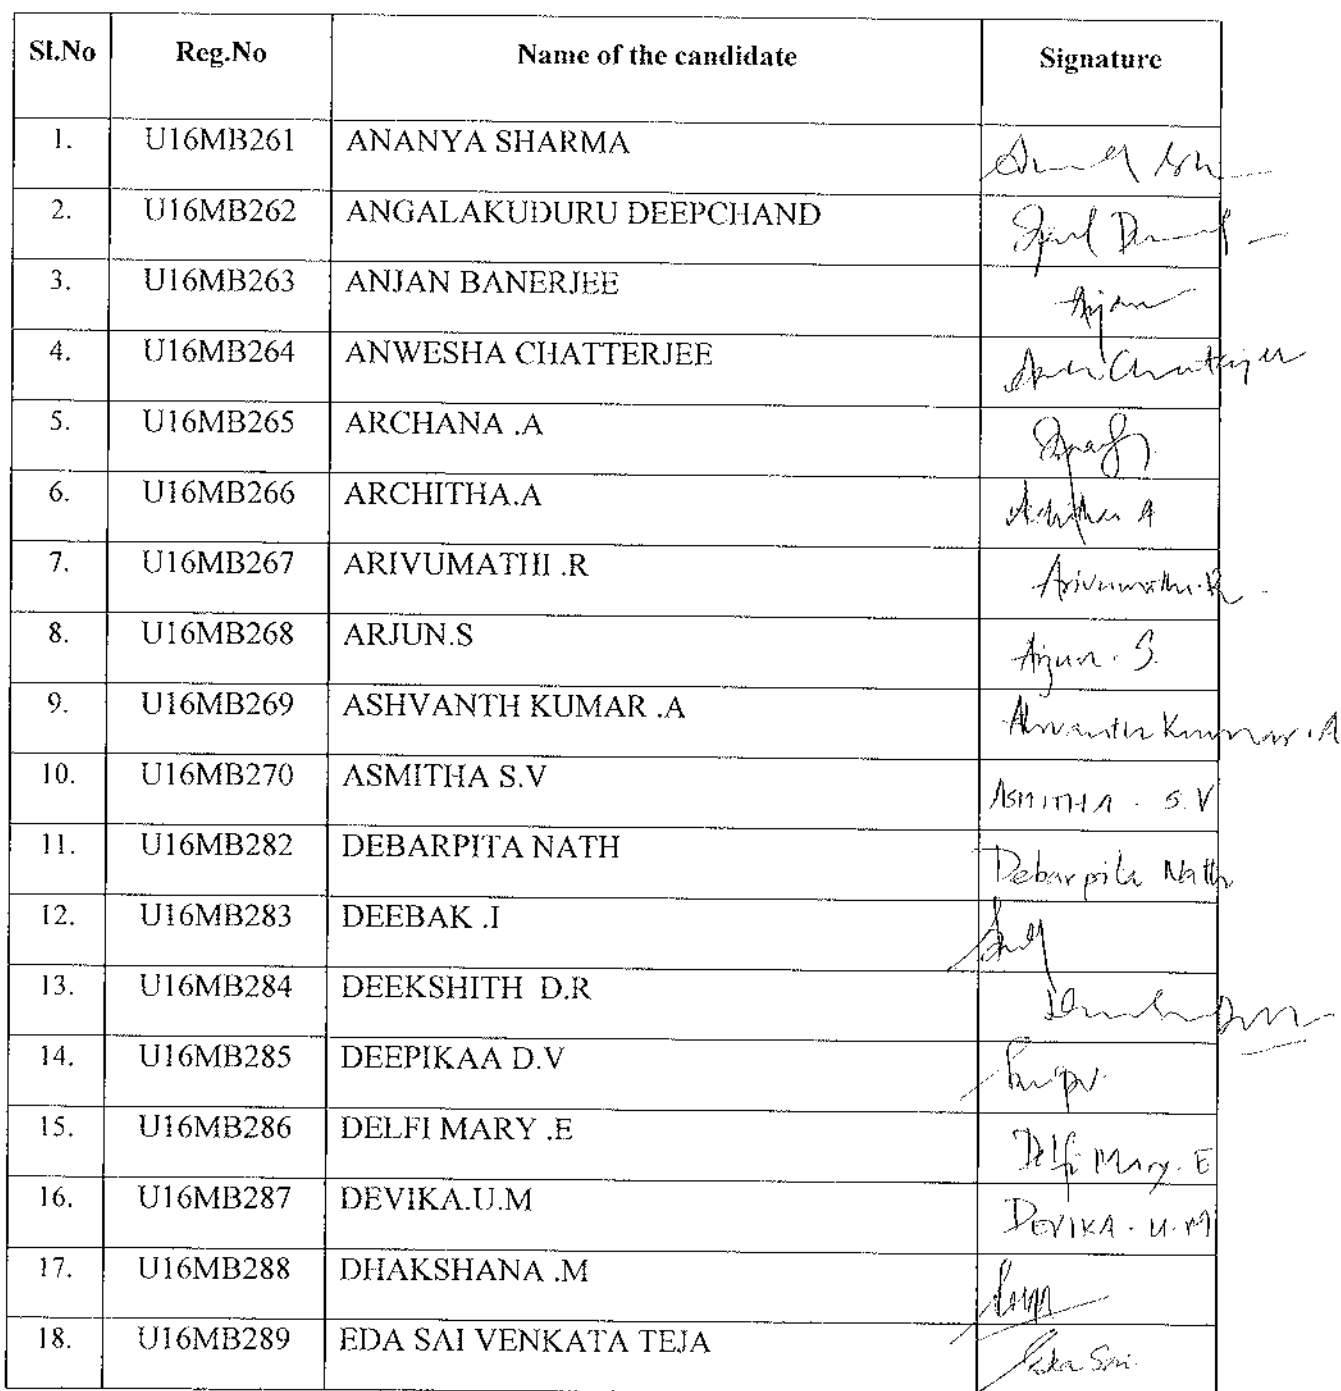 Sl.No Reg.No Name of the candidate Signature
1. U16MB261 ANANYA SHARMA
2. U16MB262 ANGALAKUDURU DEEPCHAND
3. U16MB263 ANJAN BANERJEE Anjan
4. U16MB264 ANWESHA CHATTERJEE
5. U16MB265 ARCHANA .A
6. U16MB266 ARCHITHA.A
7. U16MB267 ARIVUMATHI .R Arivumathi.R
8. U16MB268 ARJUN.S Arjun. S.
9. U16MB269 ASHVANTH KUMAR .A Ahvanth Kumar.A
10. U16MB270 ASMITHA S.V ASMITHA . S.V
11. U16MB282 DEBARPITA NATH Debarpita Nath
12. U16MB283 DEEBAK .I
13. U16MB284 DEEKSHITH D.R
14. U16MB285 DEEPIKAA D.V
15. U16MB286 DELFI MARY .E Delfi Mary. E
16. U16MB287 DEVIKA.U.M DEVIKA . U.M
17. U16MB288 DHAKSHANA .M
18. U16MB289 EDA SAI VENKATA TEJA